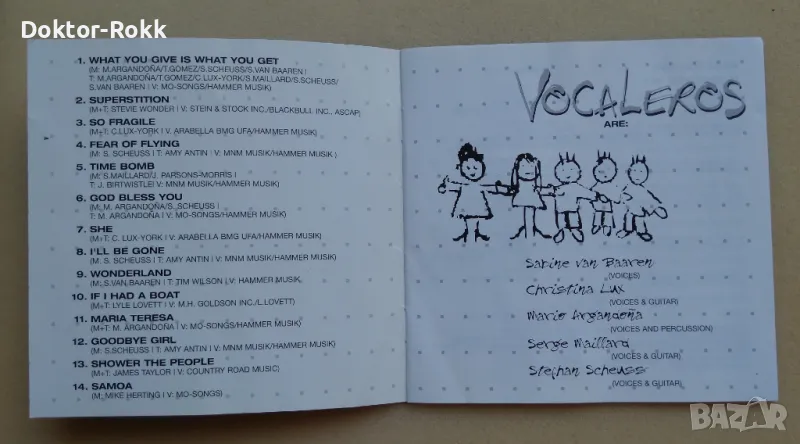 Doktor-Rokk
1. WHAT YOU GIVE IS WHAT YOU GET
(M: M.ARGANDOÑA/T.GOMEZ/S.SCHEUSS/S.VAN BAAREN I
T: M.ARGANDOÑA/T.GOMEZ/C.LUX-YORK/S.MAILLARD/S.SCHEUSS/
S.VAN BAAREN I V: MO-SONGS/HAMMER MUSIK)
2. SUPERSTITION
(M+T: STEVIE WONDER I V: STEIN & STOCK INC./BLACKBULL INC., ASCAP)
3. SO FRAGILE
(M+T: C.LUX-YORK I V: ARABELLA BMG UFA/HAMMER MUSIK)
4. FEAR OF FLYING
(M: S. SCHEUSS I T: AMY ANTIN I V: MNM MUSIK/HAMMER MUSIK )
5. TIME BOMB
(M: S.MAILLARD/J. PARSONS-MORRIS I
T: J. BIRTWISTLE I V: MNM MUSIK/HAMMER MUSIK)
6. GOD BLESS YOU
(M: M. ARGANDOÑA/S. SCHEUSS I
T: M. ARGANDOÑA I V: MO-SONGS/HAMMER MUSIK)
7. SHE
(M+T: C. LUX-YORK I V: ARABELLA BMG UFA/HAMMER MUSIK)
8. I'LL BE GONE
(M: S. SCHEUSS I T: AMY ANTIN I V: MNM MUSIK/HAMMER MUSIK)
9. WONDERLAND
(M: S.VAN BAAREN I T: TIM WILSON I V: HAMMER MUSIK.
10. IF I HAD A BOAT
(M+T: LYLE LOVETT I V: M.H. GOLDSON INC./L.LOVETT)
11. MARIA TERESA
(M+T: M. ARGANDOÑA I V: MO-SONGS/HAMMER MUSIK)
12. GOODBYE GIRL
(M: S.SCHEUSS I T: AMY ANTIN I V: MNM MUSIK/HAMMER MUSIK)
13. SHOWER THE PEOPLE
(M+T: JAMES TAYLOR I V: COUNTRY ROAD MUSIC)
14. SAMOA
(M: MIKE HERTING I V: MO-SONGS)
VOCALEROS
ARE:
Sabine van Baaren
(VOICES)
Christina Lux
(VOICES & GUITAR)
Mario Argandoña
(VOICES AND PERCUSSION)
Serge Maillard
(VOICES & GUITAR)
Stephan Scheuss
(VOICES & GUITAR)
BAZAR